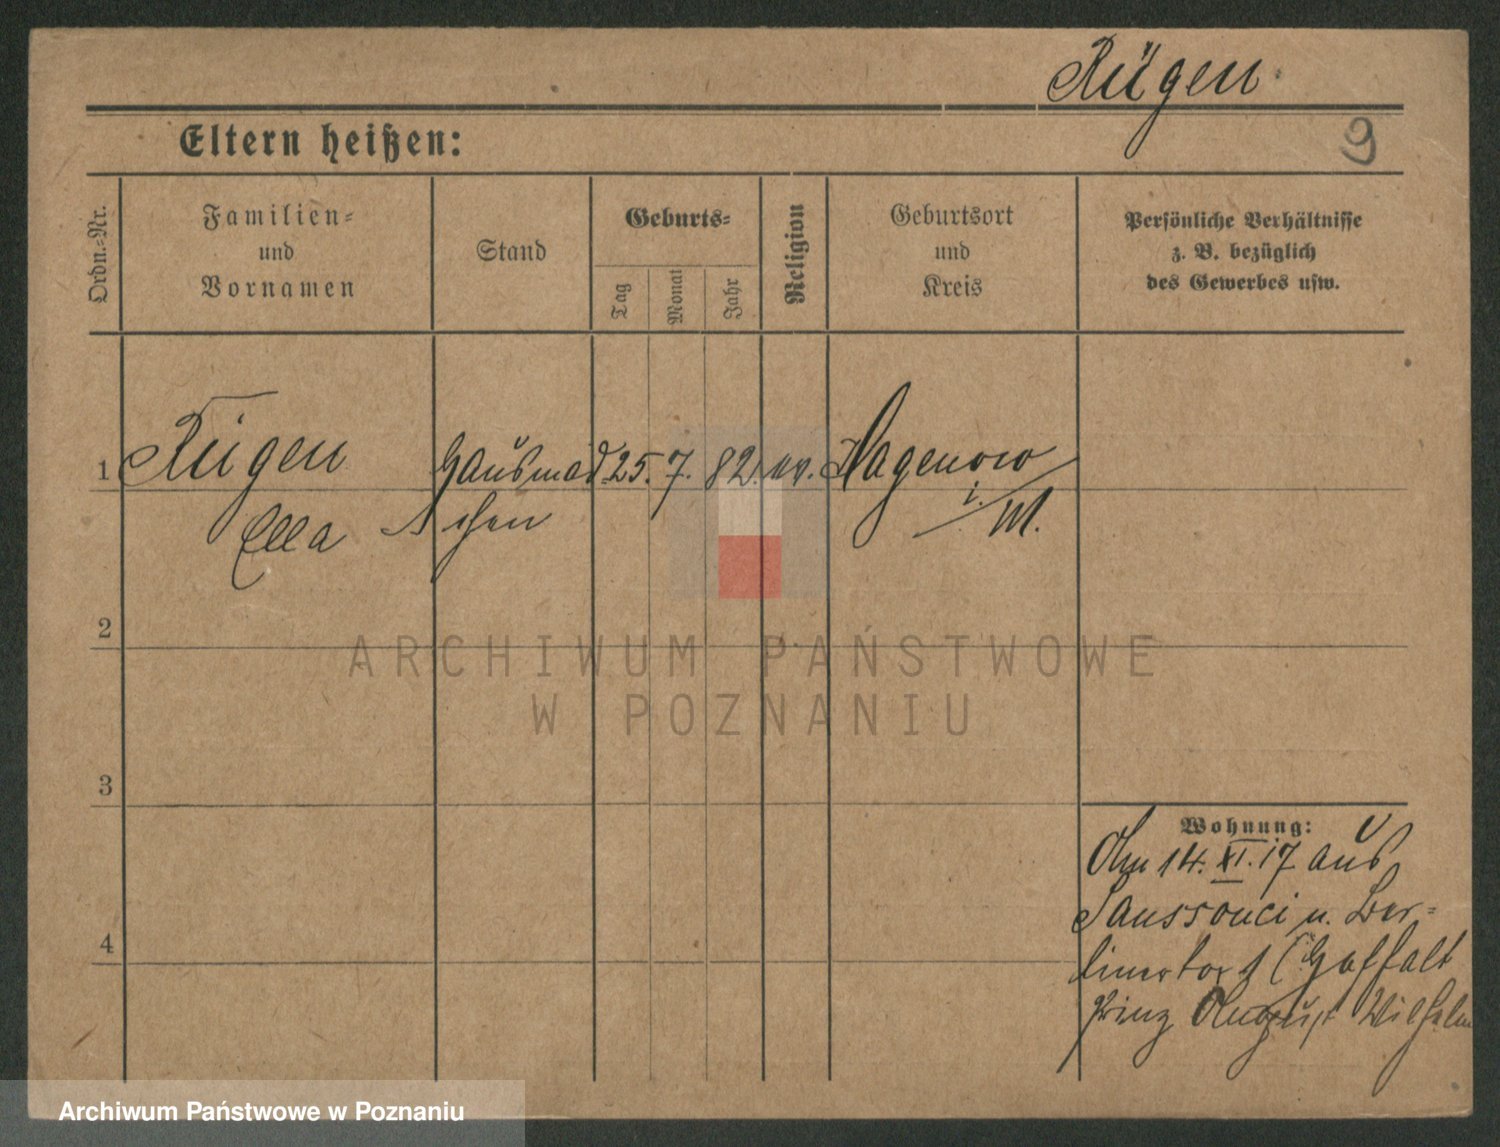 Rügen
9
Eltern heißen:
Ordn.-Nr.
Familien-
und
Vornamen
Stand
Geburts-
Tag
Monat
Jahr
Religion
Geburtsort
und
Kreis
Persönliche Verhältnisse
z. B. bezüglich
des Gewerbes usw.
1 Rügen Hausmäd 25. 7. 82. ev. Hagenow
Ella chen i. M.
2
ARCHIWUM PAŃSTWOWE
W POZNANIU
3
Wohnung:
Am 14. XI. 17 aus
Sanssouci u. Ber-
4
linertor 1 (Hofhalt
Prinz August Wilhelm
Archiwum Państwowe w Poznaniu